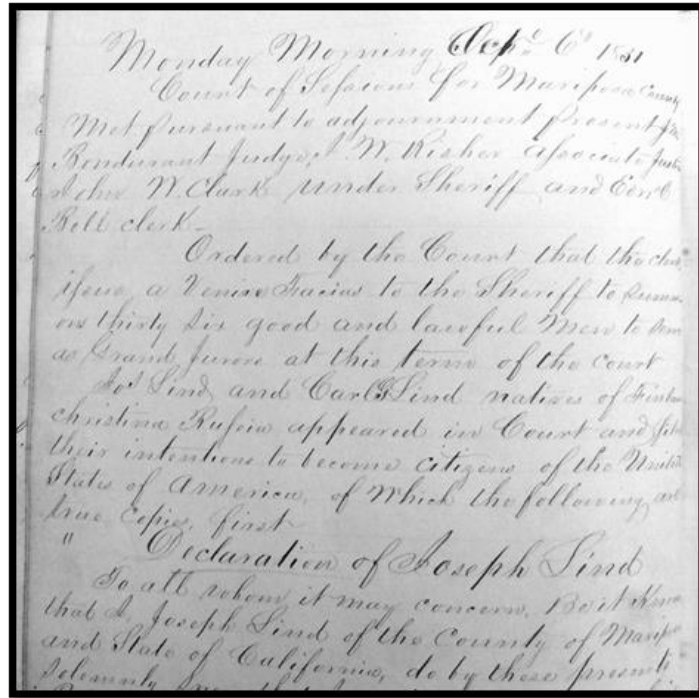 Monday Morning Oct 6th 1851
Court of Sessions for Mariposa County
Met pursuant to adjournment present
Bondurant Judge, W. Risher associate
John W. Clark under Sheriff and
Bell clerk -
Ordered by the Court that the
issue a Venire Facias to the Sheriff to summ
ons thirty six good and lawful men to
as Grand Jurors at this term of the court
Jos Lind and Carl Lind natives of
christina Russia appeared in Court and
their intentions to become citizens of the United
States of America, of which the following are
true copies, first
" Declaration of Joseph Lind
To all whom it may concern. Be it Know
that I, Joseph Lind of the County of Maripo
and State of California, do by these presents
solemnly